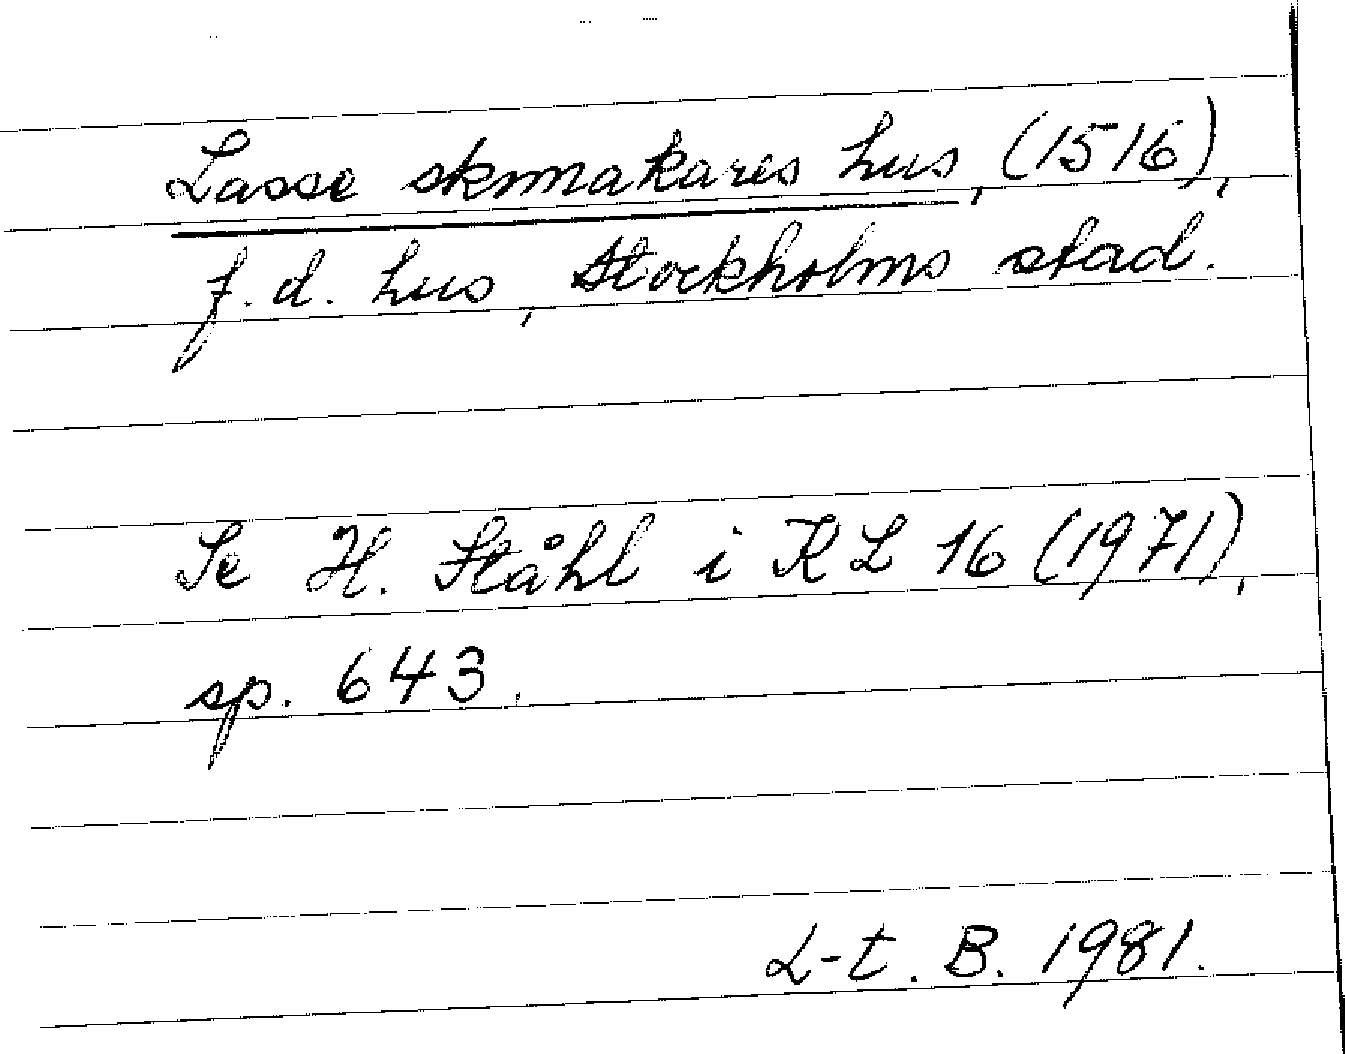 Lasse skmnakares hus, (1516),
f.d. hus, Stockholms stad.
Se H. Ståhl i KL 16 (1971),
sp. 643.
L-t. B. 1981.